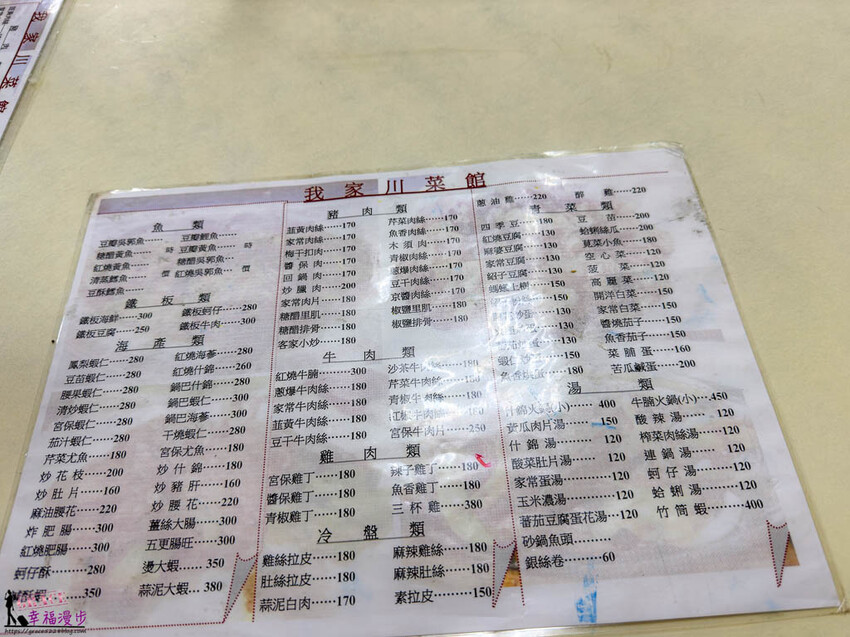 我家川菜館
魚類
豆瓣吳郭魚⋯⋯ 豆瓣鯉魚⋯⋯
糖醋黃魚⋯⋯ 時 豆瓣黃魚⋯⋯ 時
紅燒黃魚⋯⋯ 糖醋吳郭魚⋯⋯
清蒸鱈魚⋯⋯ 價 紅燒吳郭魚⋯⋯ 價
豆酥鱈魚⋯⋯
鐵板類
鐵板海鮮⋯⋯300 鐵板蚵仔⋯⋯280
鐵板豆腐⋯⋯250 鐵板牛肉⋯⋯300
海產類
鳳梨蝦仁⋯⋯280 紅燒海蔘⋯⋯280
豆苗蝦仁⋯⋯280 紅燒什錦⋯⋯260
腰果蝦仁⋯⋯280 鍋巴什錦⋯⋯280
清炒蝦仁⋯⋯280 鍋巴蝦仁⋯⋯300
宮保蝦仁⋯⋯280 鍋巴海蔘⋯⋯300
茄汁蝦仁⋯⋯280 干燒蝦仁⋯⋯280
芹菜尤魚⋯⋯180 宮保尤魚⋯⋯180
炒花枝⋯⋯200 炒什錦⋯⋯240
炒肚片⋯⋯160 炒豬肝⋯⋯160
麻油腰花⋯⋯220 炒腰花⋯⋯220
炸肥腸⋯⋯300 薑絲大腸⋯⋯300
紅燒肥腸⋯⋯300 五更腸旺⋯⋯300
蚵仔酥⋯⋯280 燙大蝦⋯⋯350
⋯⋯350 蒜泥大蝦⋯⋯380
豬肉類
韮黃肉絲⋯⋯170 芹菜肉絲⋯⋯170
家常肉絲⋯⋯170 魚香肉絲⋯⋯170
梅干扣肉⋯⋯200 木須肉⋯⋯170
醬保肉⋯⋯170 青椒肉絲⋯⋯170
回鍋肉⋯⋯170 蔥爆肉絲⋯⋯170
炒臘肉⋯⋯200 豆干肉絲⋯⋯170
家常肉片⋯⋯180 京醬肉絲⋯⋯170
糖醋里肌⋯⋯180 椒鹽里肌⋯⋯180
糖醋排骨⋯⋯180 椒鹽排骨⋯⋯180
客家小炒⋯⋯180
牛肉類
紅燒牛腩⋯⋯300 沙茶牛⋯⋯180
蔥爆牛肉絲⋯⋯180 芹菜牛肉絲⋯⋯180
家常牛肉絲⋯⋯180 青椒牛肉絲⋯⋯180
韮黃牛肉絲⋯⋯180 牛肉絲⋯⋯180
豆干牛肉絲⋯⋯180 宮保牛肉片⋯⋯250
雞肉類
宮保雞丁⋯⋯180 辣子雞丁⋯⋯180
醬保雞丁⋯⋯180 魚香雞丁⋯⋯180
青椒雞丁⋯⋯180 三杯雞⋯⋯380
冷盤類
雞絲拉皮⋯⋯180 麻辣雞絲⋯⋯180
肚絲拉皮⋯⋯180 麻辣肚絲⋯⋯180
蒜泥白肉⋯⋯170 素拉皮⋯⋯150
蔥油雞⋯⋯220 醉雞⋯⋯220
青菜類
四季豆⋯⋯180 豆苗⋯⋯200
紅燒豆腐⋯⋯130 蛤蜊絲瓜⋯⋯200
麻婆豆腐⋯⋯130 莧菜小魚⋯⋯180
家常豆腐⋯⋯130 空心菜⋯⋯150
紹子豆腐⋯⋯130 菠菜⋯⋯150
螞蟻上樹 高麗菜⋯⋯150
開洋白菜⋯⋯150
家常白菜⋯⋯150
醬燒茄子⋯⋯150
魚香茄子⋯⋯150
蝦仁 150 菜脯蛋⋯⋯160
魚香烘蛋⋯⋯180 苦瓜鹹蛋⋯⋯200
湯類
什錦火鍋(小)⋯⋯400 牛腩火鍋(小)⋯⋯450
黃瓜肉片湯⋯⋯150 酸辣湯⋯⋯120
什錦湯⋯⋯120 榨菜肉絲湯⋯⋯120
酸菜肚片湯⋯⋯120 連鍋湯⋯⋯120
家常蛋湯⋯⋯120 蚵仔湯⋯⋯120
玉米濃湯⋯⋯120 蛤蜊湯⋯⋯120
蕃茄豆腐蛋花湯⋯⋯120 竹筒蝦⋯⋯400
砂鍋魚頭⋯⋯
銀絲卷⋯⋯60
我家川菜館
幸福漫步